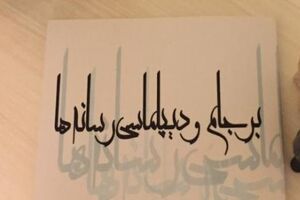 برجام و دیپلماسی رسانه ها